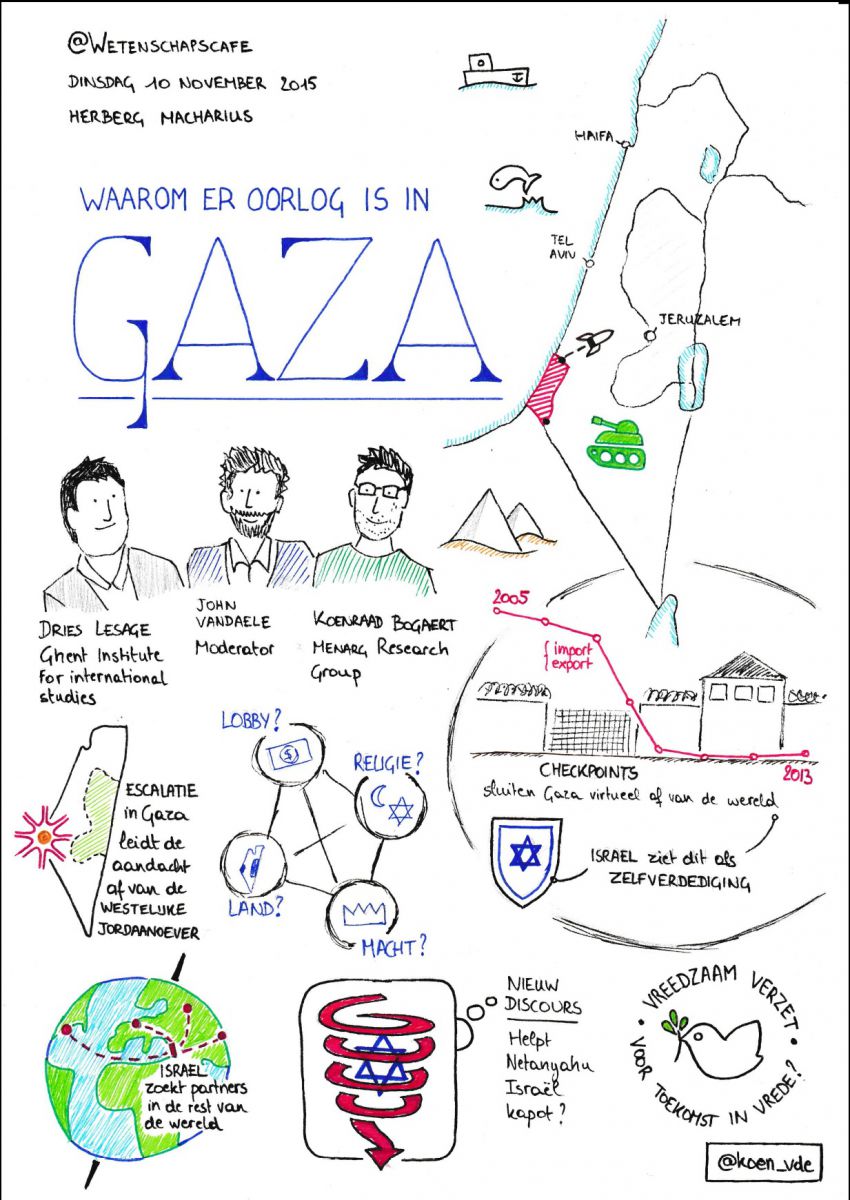 @WETENSCHAPSCAFE
DINSDAG 10 NOVEMBER 2015
HERBERG MACHARIUS
WAAROM ER OORLOG IS IN
GAZA
HAIFA
TEL
AVIV
JERUZALEM
DRIES LESAGE
Ghent Institute
for international
studies
JOHN
VANDAELE
Moderator
KOENRAAD BOGAERT
MENARG Research
Group
2005
import
export
2013
CHECKPOINTS
sluiten Gaza virtueel af van de wereld
ISRAEL ziet dit als
ZELFVERDEDIGING
ESCALATIE
in Gaza
leidt de
aandacht
af van de
WESTELIJKE
JORDAANOEVER
LOBBY?
$
RELIGIE?
LAND?
MACHT?
ISRAEL
zoekt partners
in de rest van
de wereld
NIEUW
DISCOURS
Helpt
Netanyahu
Israël
kapot?
VREEDZAAM VERZET
VOOR TOEKOMST IN VREDE?
@koen_vde